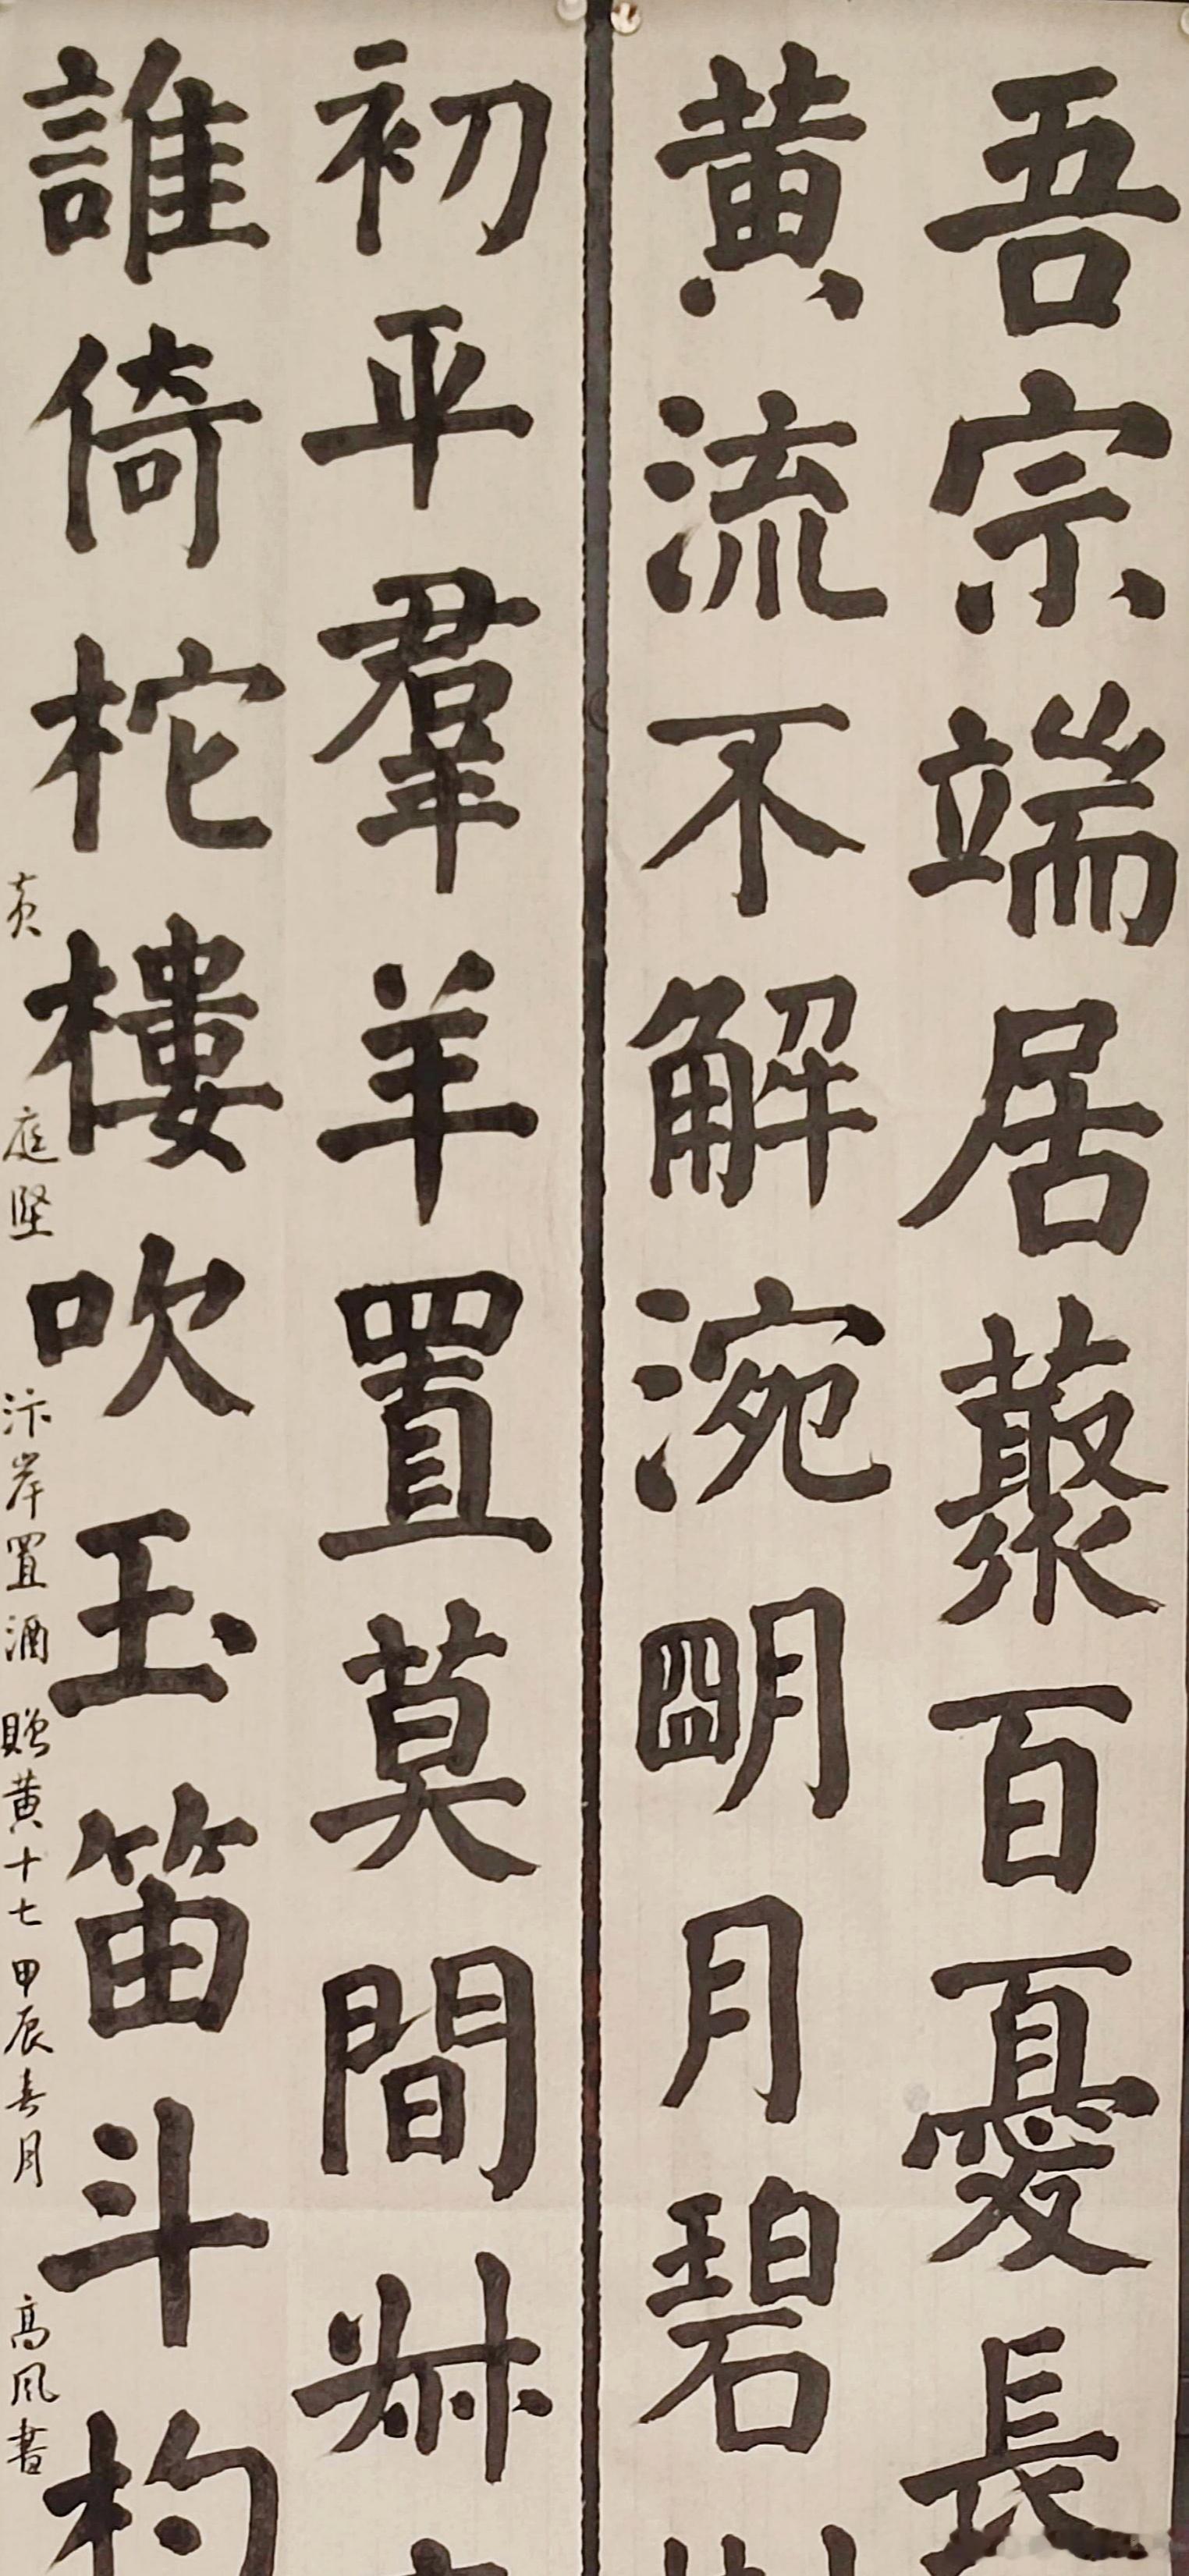 吾宗端居藂百憂長
黄流不解涴朙月碧
初平羣羊置莫間叔
誰倚柁樓吹玉笛斗杓
黄庭堅 汴岸置酒 贈黄十七 甲辰春月 高風書